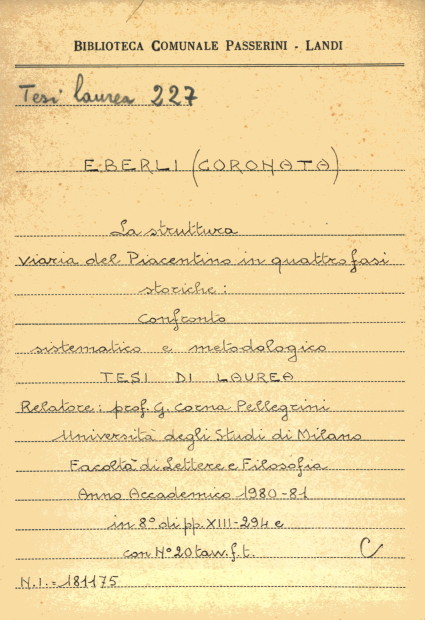 BIBLIOTECA COMUNALE PASSERINI - LANDI
Tesi laurea 227
EBERLI (CORONATA)
La struttura
viaria del Piacentino in quattro fasi
storiche:
Confronto
sistematico e metodologico
TESI DI LAUREA
Relatore: prof. G. Corna Pellegrini
Università degli Studi di Milano
Facoltà di Lettere e Filosofia
Anno Accademico 1980-81
in 8° di pp. XIII-294 e
con N° 20 tavv. f. t.
C
N.I. = 181175